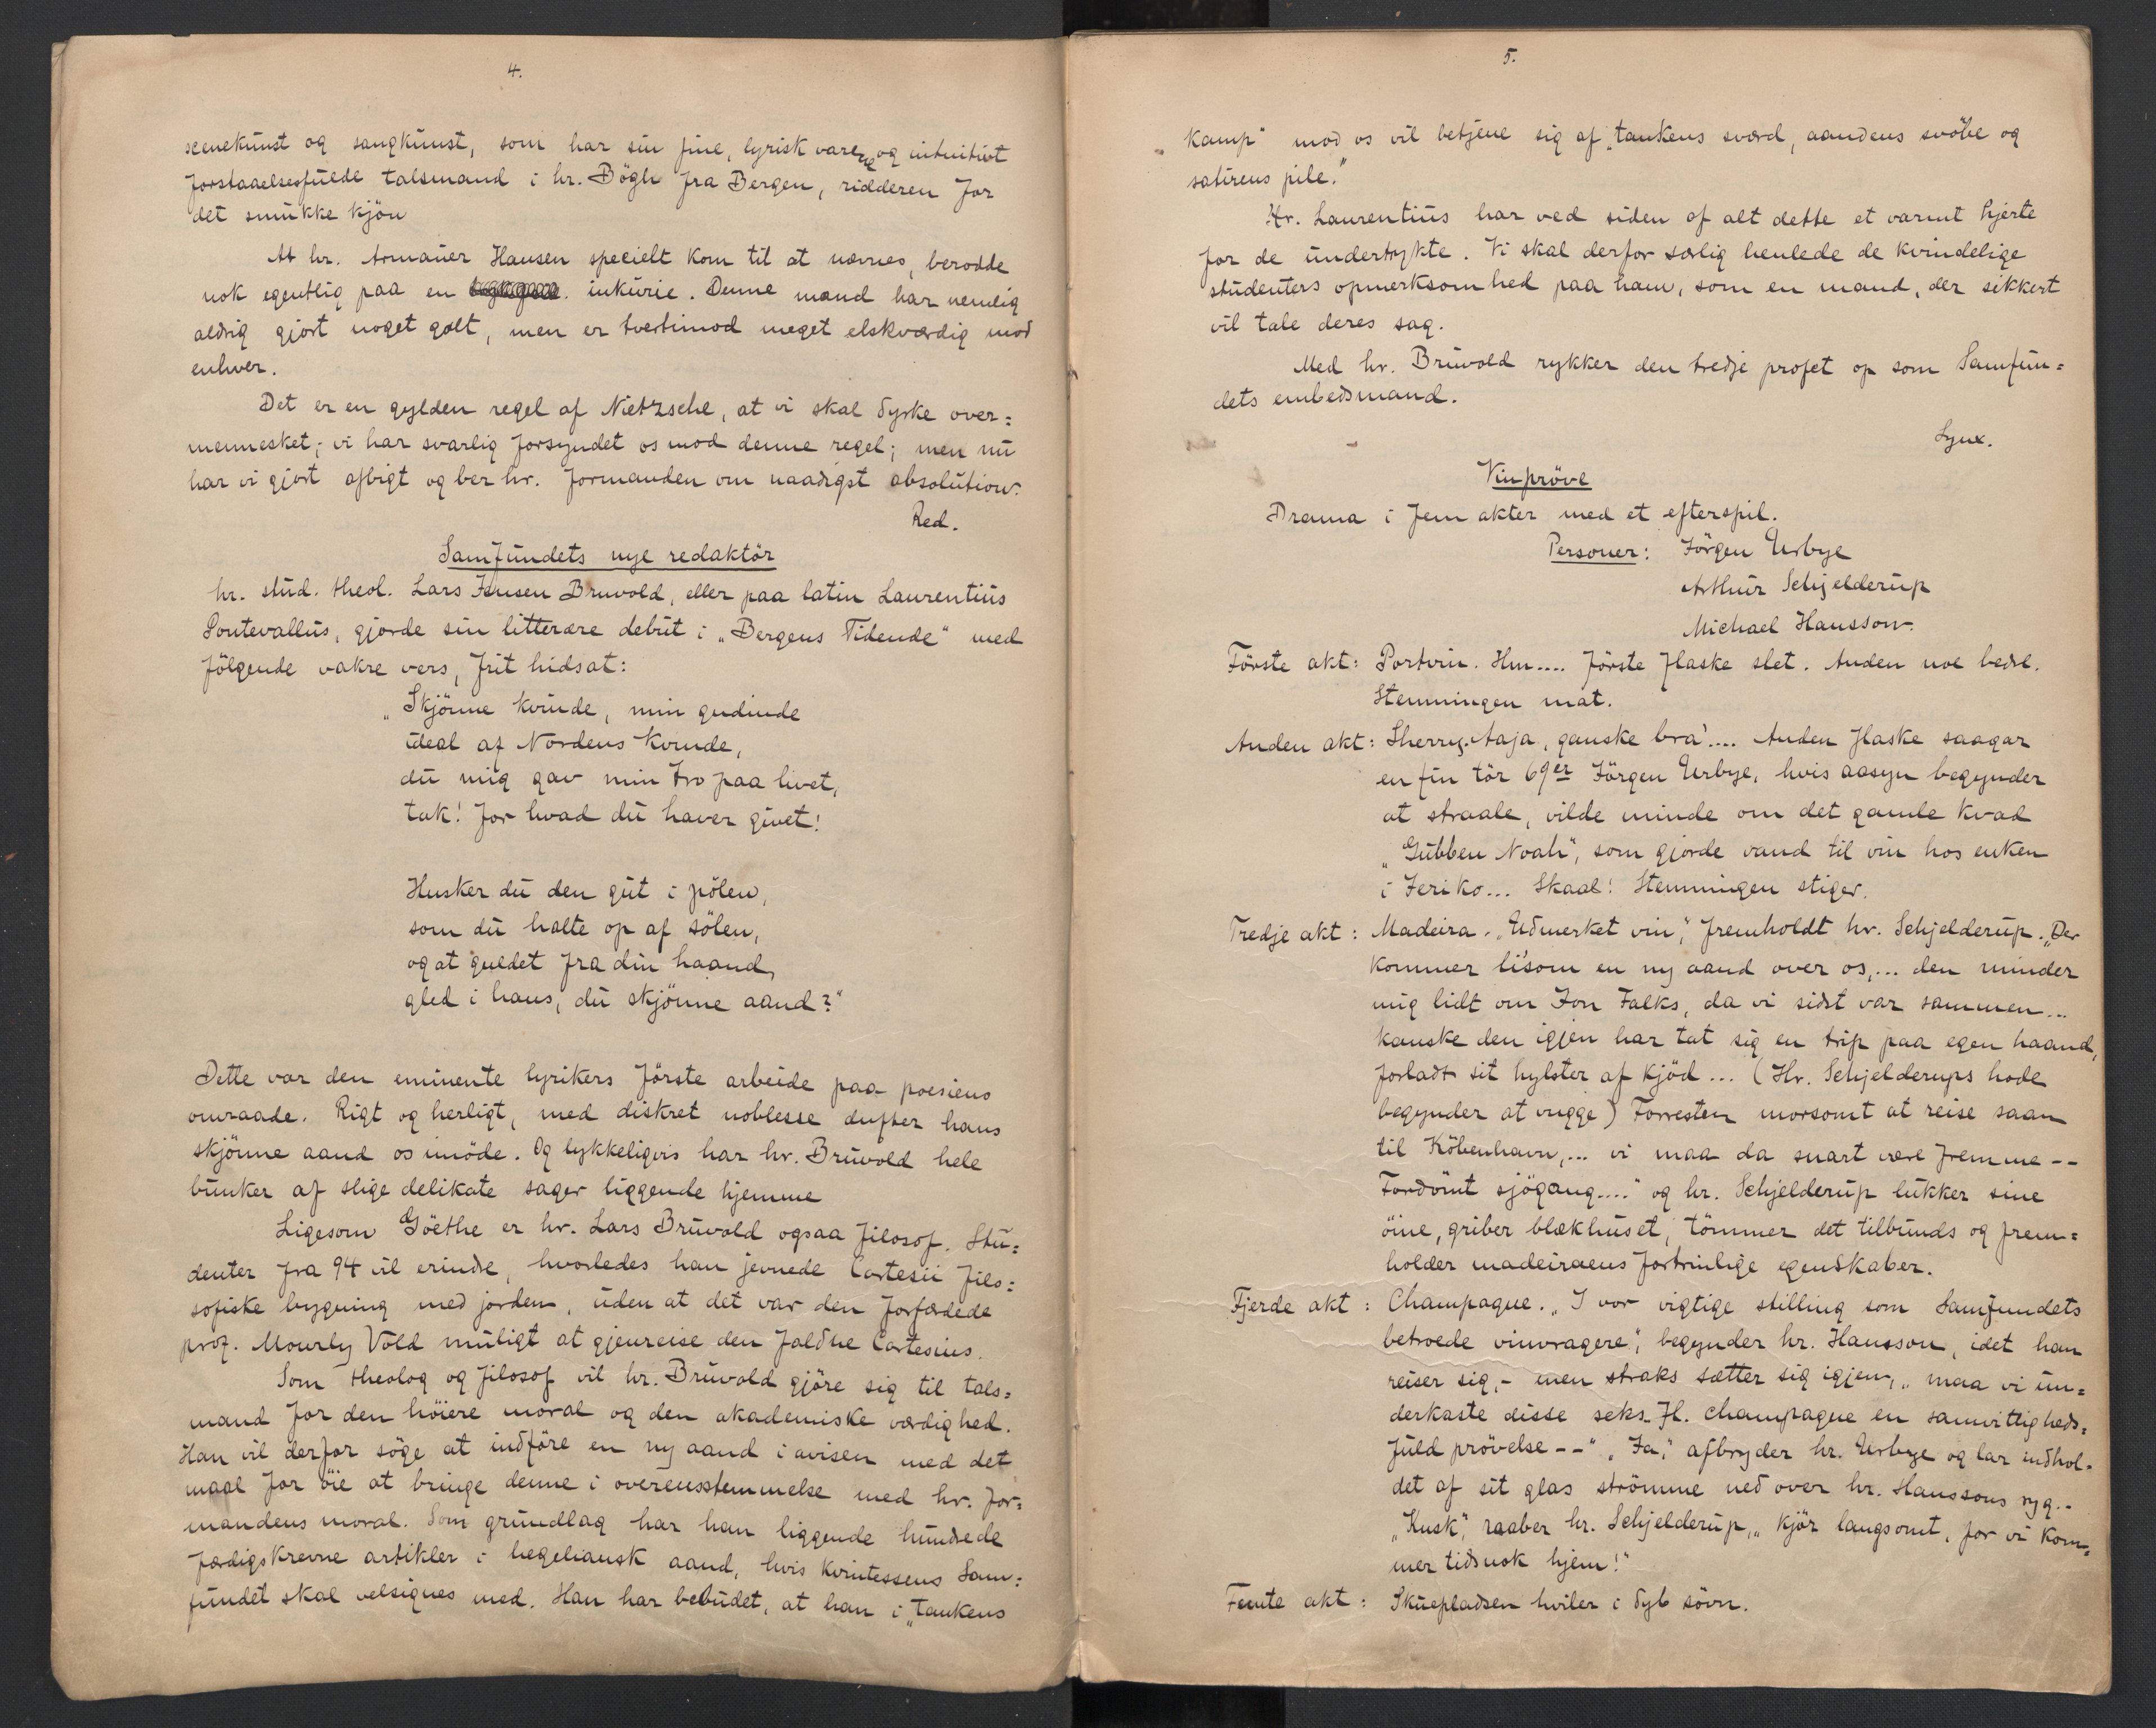 4.
scenekunst og sangkunst, som har sin fine, lyrisk vare og intuitivt
forstaaelsesfulde talsmand i hr. Bögh fra Bergen, ridderen for
det smukke kjön
At hr. Armauer Hansen specielt kom til at nævnes, berodde
nok egentlig paa en inkurie. Denne mand har nemlig
aldrig gjort noget galt, men er tvertimod meget elskværdig mod
enhver.
Det er en gylden regel af Nietzsche, at vi skal dyrke over=
mennesket; vi har svarlig forsyndet os mod denne regel; men nu
har vi gjort afbigt og ber hr. formanden om naadigst absolution.
Red.
Samfundets nye redaktör
hr. stud. theol. Lars Jensen Bruvold, eller paa latin Laurentius
Pontevallus, gjorde sin litterære debut i „Bergens Tidende" med
fölgende vakre vers, frit hidsat:
„Skjönne kvinde, min gudinde
ideal af Nordens kvinde,
du mig gav min tro paa livet,
tak! for hvad du haver givet!
Husker du den gut i pölen,
som du halte op af sölen,
og at guldet fra din haand,
gled i hans, du skjönne aand?"
Dette var den eminente lyrikers förste arbeide paa poesiens
omraade. Rigt og herligt, med diskret noblesse dufter hans
skjönne aand os imöde. Og lykkeligvis har hr. Bruvold hele
bunker af slige delikate sager liggende hjemme
Ligesom Göethe er hr. Lars Bruvold ogsaa filosof. Stu=
denter fra 94 vil erindre, hvorledes han jevnede Cartesii filo=
sofiske bygning med jorden, uden at det var den forfærdede
prof. Mourly Vold muligt at gjenreise den faldne Cartesius.
Som theolog og filosof vil hr. Bruvold gjöre sig til tals=
mand for den höiere moral og den akademiske værdighed.
Han vil derfor söge at indföre en ny aand i avisen med det
maal for öie at bringe denne i overensstemmelse med hr. for=
mandens moral. Som grundlag har han liggende hundrede
færdigskrevne artikler i hegeliansk aand, hvis kvintessens Sam=
fundet skal velsignes med. Han har bebudet, at han i „tankens
5.
kamp" mod os vil betjene sig af „tankens sværd, aandens svöbe og
satirens pile."
Hr. Laurentius har ved siden af alt dette et varmt hjerte
for de undertrykte. Vi skal derfor særlig henlede de kvindelige
studenters opmerksomhed paa ham, som en mand, der sikkert
vil tale deres sag.
Med hr. Bruvold rykker den tredje profet op som Samfun=
dets embedsmand.
Lynx.
Vinpröve
Drama i fem akter med et efterspil.
Personer: Jörgen Urbye
Arthur Schjelderup
Michael Hansson.
Förste akt: Portvin. Hm.... förste flaske slet. Anden noe bedre.
Stemningen mat.
Anden akt: Sherry. Aaja, ganske bra'.... Anden flaske saagar
en fin tör 69er Jörgen Urbye, hvis aasyn begynder
at straale, vilde minde om det gamle kvad
„Gubben Noah", som gjorde vand til vin hos enken
i Jeriko... Skaal! Stemningen stiger.
Tredje akt: Madeira. „Udmerket vin", fremholdt hr. Schjelderup. „Der
kommer li'som en ny aand over os,... den minder
mig lidt om Jon Falks, da vi sidst var sammen...
kanske den igjen har tat sig en trip paa egen haand,
forladt sit hylster af kjöd... (Hr. Schjelderups hode
begynder at vugge) Forresten morsomt at reise saan
til Köbenhavn,... vi maa da snart være fremme--
Fordömt sjögang...." og hr. Schjelderup lukker sine
öine, griber blækhuset, tömmer det tilbunds og frem=
holder madeiraens fortrinlige egenskaber.
Fjerde akt: Champagne. „I vor vigtige stilling som Samfundets
betroede vinvragere", begynder hr. Hansson, idet han
reiser sig,- men straks sætter sig igjen, „maa vi un=
derkaste disse seks fl. champagne en samvittigheds=
fuld prövelse--" „Ja", afbryder hr. Urbye og lar indhol=
det af sit glas strömme ned over hr. Hanssons ryg.-
„Kusk", raaber hr. Schjelderup, „kjör langsomt, for vi kom=
mer tidsnok hjem!"
Femte akt: Skuepladsen hviler i dyb sövn.